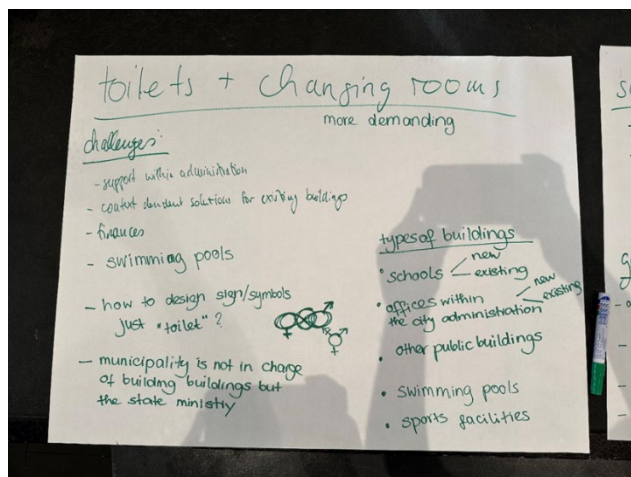 toilets + changing rooms
more demanding
challenges:
- support within administration
- context dependent solutions for existing buildings
- finances
- swimming pools
- how to design sign/symbols
just "toilet"?
- municipality is not in charge
of building buildings but
the state ministry
types of buildings
• schools < new
existing
• offices within
the city administration < new
existing
• other public buildings
• swimming pools
• sports facilities